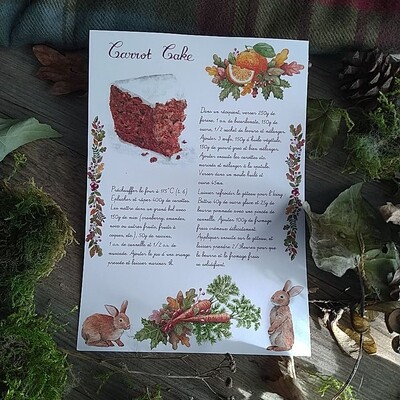 Carrot Cake
Préchauffer le four à 175°C (t. 6)
Eplucher et râper 400g de carottes.
Les mettre dans un grand bol avec
150g de mix (cranberry, amandes,
noix ou autres fruits, fraîche à
, etc), 50g de raisins,
1 c.s. de cannelle et 1/2 c.s. de
muscade. Ajouter le jus d'une orange
pressée et laisser mariner 1h.
Dans un récipient, verser 250g de
farine, 1 c.s. de bicarbonate, 150g de
sucre, 1/2 sachet de levure et mélanger.
Ajouter 3 œufs, 150g d'huile végétale,
150g de yaourt grec et bien mélanger.
Ajouter ensuite les carottes etc,
marinés et mélanger à la spatule.
Verser dans un moule huilé et
cuire 45mn.
Laisser refroidir le gâteau pour le
Battre 40g de sucre glace et 25g de
beurre pommade avec une pincée de
vanille. Ajouter 100g de fromage
frais crémeux délicatement.
Appliquer ensuite sur le gâteau,
et laisser prendre 2/3heures pour que
le beurre et le fromage frais
se solidifient.